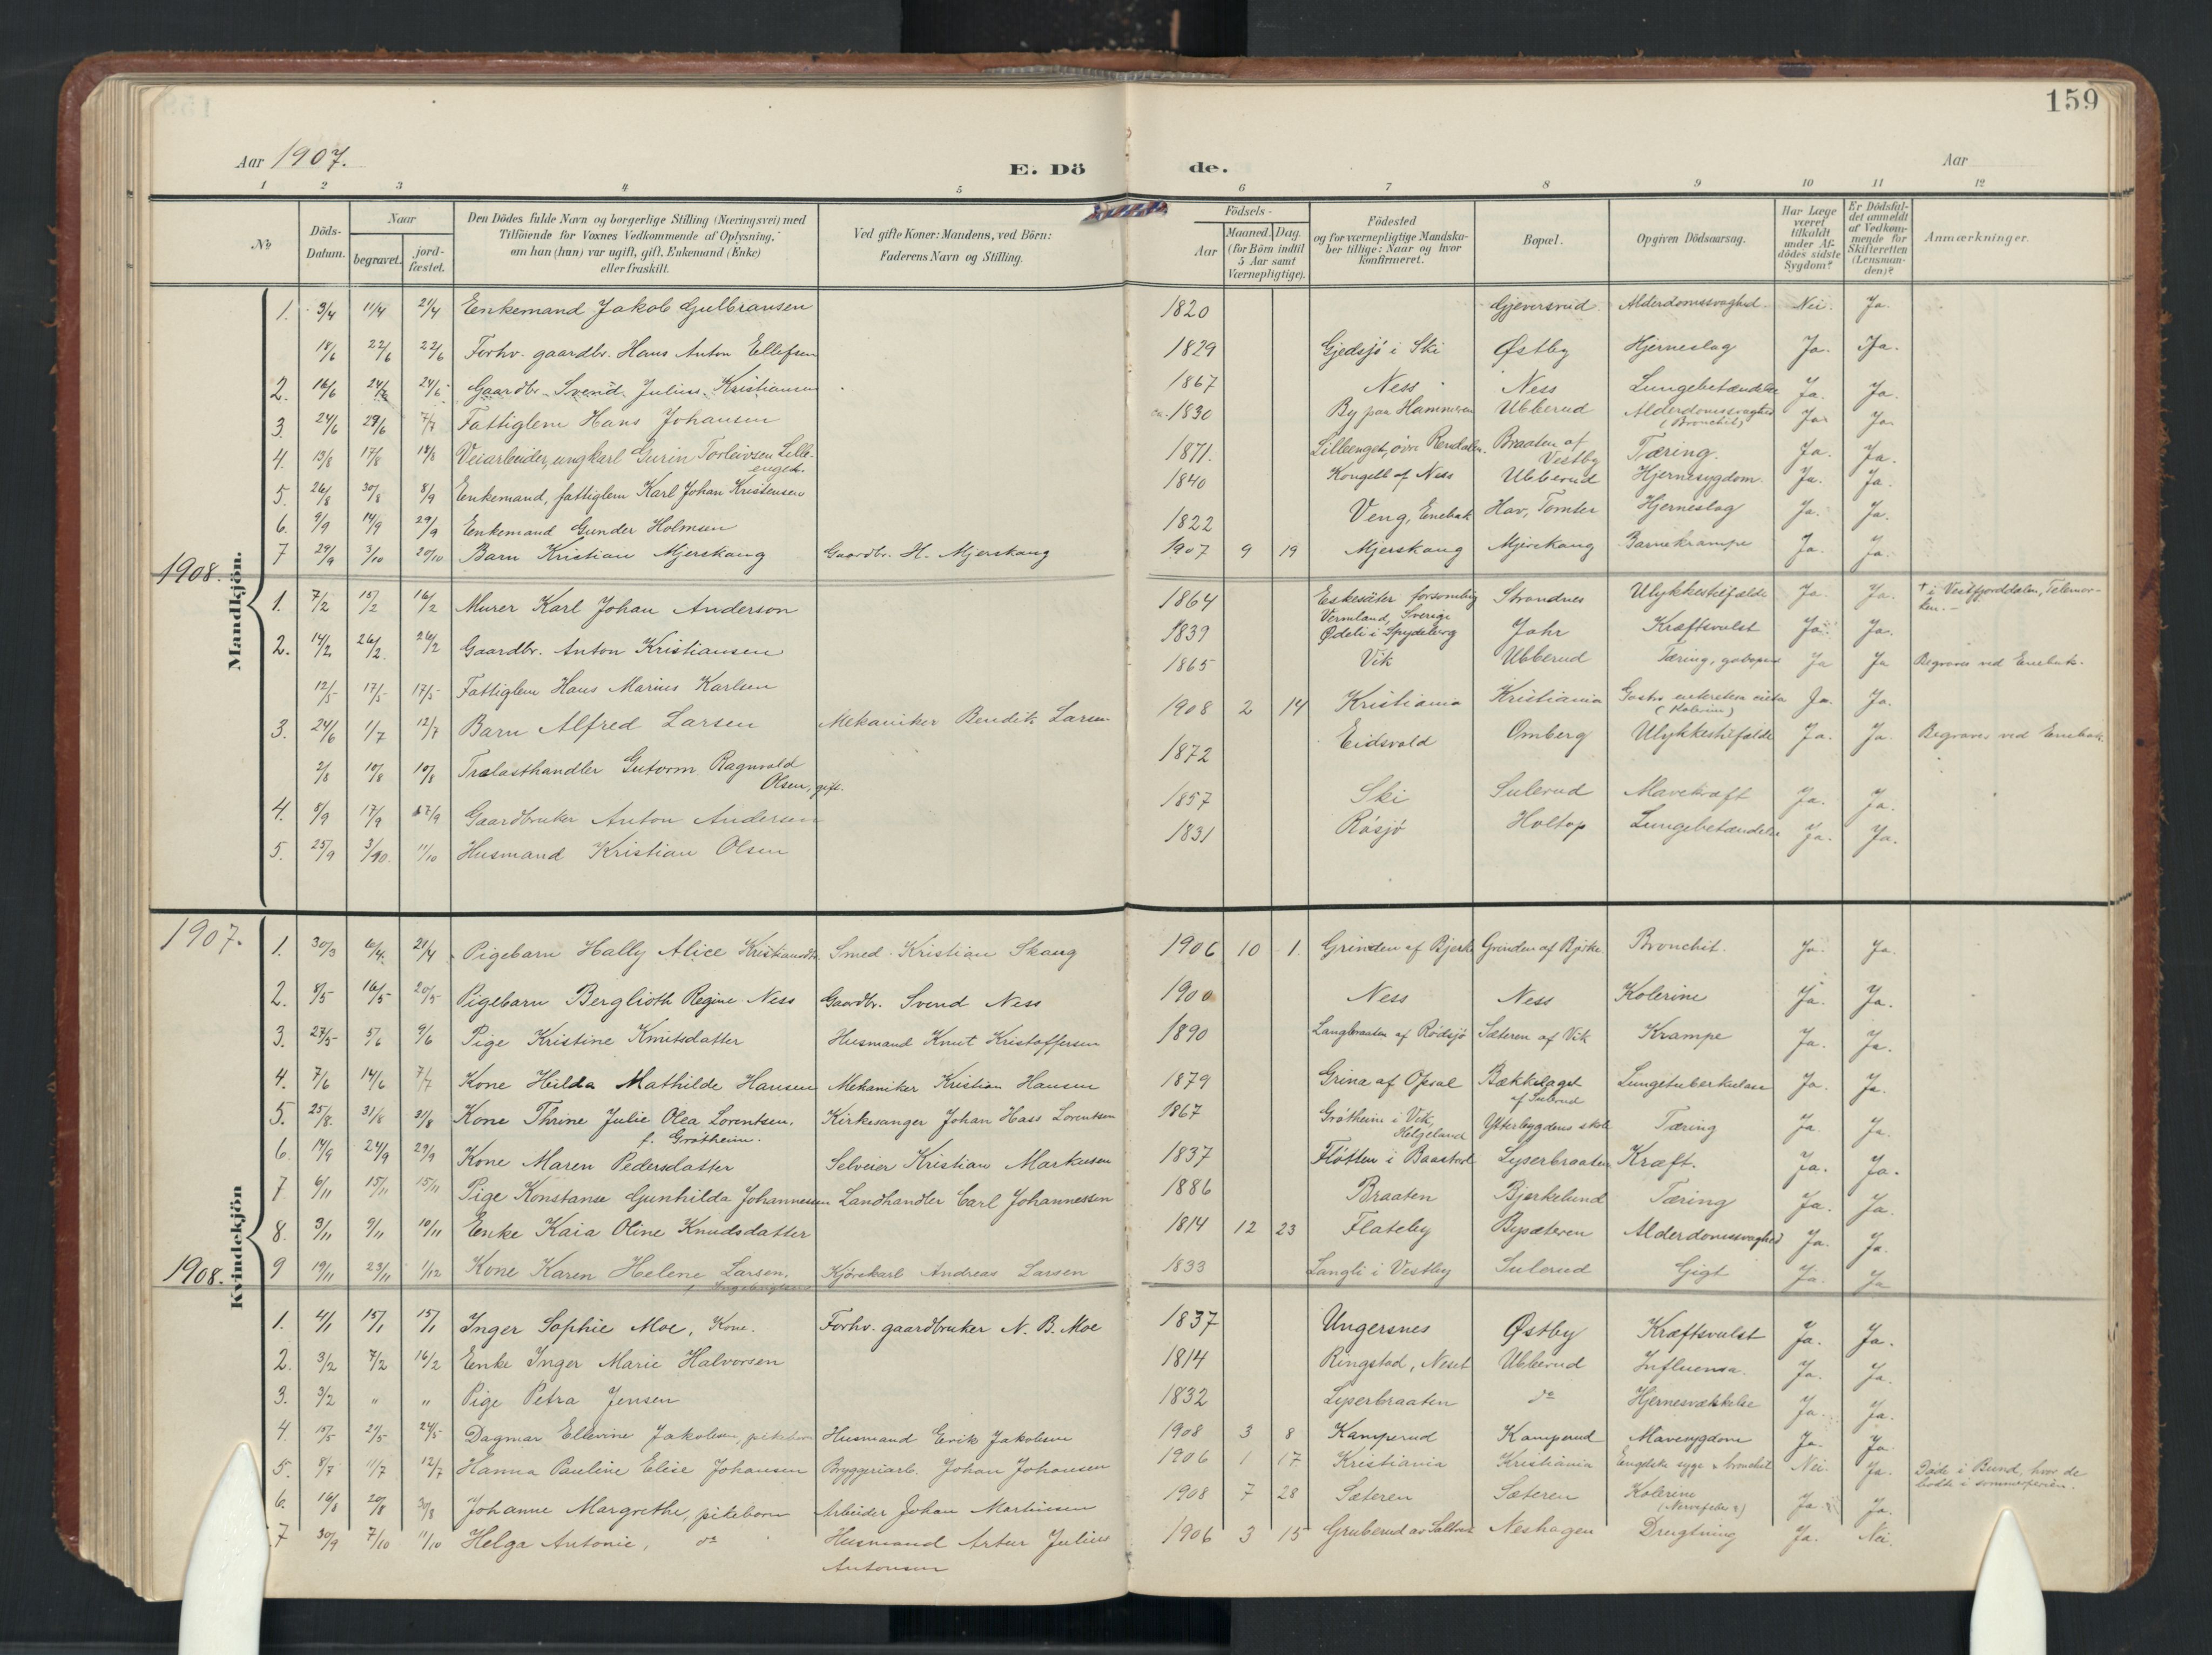 159
Aar 1907.
E. Dö de.
Aar
1 2 3 4 5 6 7 8 9 10 11 12
No
Döds-Datum.
Naar
begravet.
jord-fæstet.
Den Dödes fulde Navn og borgerlige Stilling (Næringsvei) med
Tilföiende for Voxnes Vedkommende af Oplysning,
om han (hun) var ugift, gift, Enkemand (Enke)
eller fraskilt.
Ved gifte Koner: Mandens, ved Börn:
Faderens Navn og Stilling.
Födsels-
Aar
Maaned. Dag.
(for Börn indtil
5 Aar samt
Værnepligtige).
Födested
og for værnepligtige Mandska-
ber tillige: Naar og hvor
Konfirmeret.
Bopæl.
Opgiven Dödsaarsag.
Har Læge
været
tilkaldt
under Af-
dödes sidste
Sygdom?
Er Dödsfal-
det anmeldt
af Vedkom-
mende for
Skifteretten
(Lensman-
den)?
Anmærkninger.
Mandkjön.
1. 3/4 11/4 21/4 Enkemand Jakob Gulbransen 1820 Gjeversrud Alderdomssvaghed. Nei. Ja.
18/6 22/6 22/6 Forhv. gaardbr. Hans Anton Ellefsen 1829 Gjedsjö i Ski Østby Hjerneslag Ja. Ja.
2. 16/6 24/6 Gaardbr. Svend Julius Kristiansen 1867 Ness Ness Lungebetændelse Ja. Ja.
3. 24/6 29/6 7/7 Fattiglem Hans Johansen ca. 1830 By paa Hammeren Ubberud Alderdomssvaghed (Bronchit) Ja Ja
4. 13/8 17/8 18/8 Veiarbeider, ungkarl Torleivsen Lille-
enget. 1871. Lilleenget, øvre Rendalen. Braaten af Vestby Tæring. Ja. Ja.
5. 26/8 30/8 8/9 Enkemand, fattiglem Karl Johan Kristensen 1840 Kongell af Ness Ubberud Hjernesygdom. Ja. Ja.
6. 9/9 14/9 29/9 Enkemand Gunder Holmsen 1822 Veng, Enebak Hav, Tomter Hjerneslag Ja. Ja.
7 29/9 3/10 20/10 Barn Kristian Mjerskaug Gaardbr. H. Mjerskaug 1907 9 19 Mjerskaug Mjerskaug Barnekrampe Ja. Ja.
1908.
1. 7/2 15/2 16/2 Murer Karl Johan Anderson 1864 Eskesäter forsamling
Vermland, Sverige Strandnes Ulykkestilfælde Ja. Ja. † i Vestfjorddalen, Telemar-
ken.-
2. 14/2 26/2 26/2 Gaardbr. Anton Kristiansen 1839 Ødeli i Spydeberg Jahr Kræftsvulst Ja. Ja.
12/5 17/5 17/5 Fattiglem Hans Marius Karlsen 1865 Vik Ubberud Tæring, Ja Ja Begraves ved Enebak.
3. 24/6 1/7 12/7 Barn Alfred Larsen Mekaniker Bendik Larsen 1908 2 14 Kristiania Kristiania (Kolerine) Ja. Ja.
2/8 10/8 10/8 Trælasthandler Gutorm Ragnvald
Olsen, gift. 1872 Eidsvold Omberg Ulykkestilfælde Ja. Ja. Begraves ved Enebak.
4. 8/9 17/9 17/9 Gaardbruker Anton Andersen 1857 Ski Sulerud Mavekræft Ja. Ja.
5. 25/9 3/10 11/10 Husmand Kristian Olsen 1831 Rösjö Holtop Lungebetændelse Ja. Ja.
1907.
Kvindekjön
1. 30/3 6/4 21/4 Pigebarn Hally Alice Kristiansdtr. Smed Kristian Skaug 1906 10 1 Grinden af Bjerke Grinden af Bjerke Bronchit. Ja. Ja.
2. 8/5 16/5 20/5 Pigebarn Berglioth Regine Ness Gaardbr. Svend Ness 1900 Ness Ness Kolerine Ja. Ja.
3. 27/5 5/6 9/6 Pige Kristine Knutsdatter Husmand Knut Kristoffersen 1890 Langbraaten af Rödsjö Sæteren af Vik Krampe Ja. Ja.
4. 7/6 14/6 7/7 Kone Hilda Mathilde Hansen Mekaniker Kristian Hansen 1879 Grina af Opsal Bækkelaget
af Sulerud Lungetuberkulose Ja. Ja.
5. 25/8. 31/8 31/8 Kone Thrine Julie Olea Lorentsen.
f. Grötheim. Kirkesanger Johan Hass Lorentsen 1867 Grötheim i Vik,
Helgeland Ytterbygdens skole Tæring Ja. Ja.
6. 19/9 24/9 29/9 Kone Maren Pedersdatter Selveier Kristian Markussen 1837 Flötten i Baastad Lyserbraaten Kræft. Ja. Ja.
7 6/11 15/11 15/11 Pige Konstanse Gunhilda Johannessen Landhandler Carl Johannessen 1886 Braaten Bjerkelund Tæring Ja. Ja.
8. 3/11 9/11 10/11 Enke Kaia Oline Knudsdatter 1814 12 23 Flateby Bysæteren Alderdomssvaghed Ja. Ja.
9 19/11 23/11 1/12 Kone Karen Helene Larsen. Kjörekarl Andreas Larsen 1833 Langli i Vestby Sulerud Gigt Ja. Ja
1908.
1. 4/1 15/1 15/1 Inger Sophie Moe, Kone. Forhv. gaardbruker N. B. Moe 1837 Ungersnes Østby Kræftsvulst Ja. Ja.
2. 3/2 7/2 16/2 Enke Inger Marie Halvorsen 1814 Ringstad, Neset Ubberud Influensa. Ja. Ja.
3. 3/2 " " Pige Petra Jensen 1832 Lyserbraaten do Ja. Ja.
4. 15/5 21/5 24/5 Dagmar Ellevine Jakobsen, pikebarn Husmand Erik Jakobsen 1908 3 8 Kamperud Kamperud Mavesygdom Ja. Ja
5. 8/7 11/7 12/7 Hanna Pauline Elise Johansen Bryggeriarb. Johan Johansen 1906 1 17 Kristiania Kristiania Engelsk syge & bronchit Nei. Ja. Döde i Bund, hvor de
bodde i sommerferien.
6. 16/8 20/8 30/8 Johanne Margrethe, pikebarn Arbeider Johan Martinsen 1908 7 28 Sæteren Sæteren Kolerine
(Nervefeber?) Ja. Ja.
7 30/9 7/10 11/10 Helga Antonie, do Husmand Artur Julius
Antonsen 1906 3 15 Gruberud av Neshagen Ja. Nei.